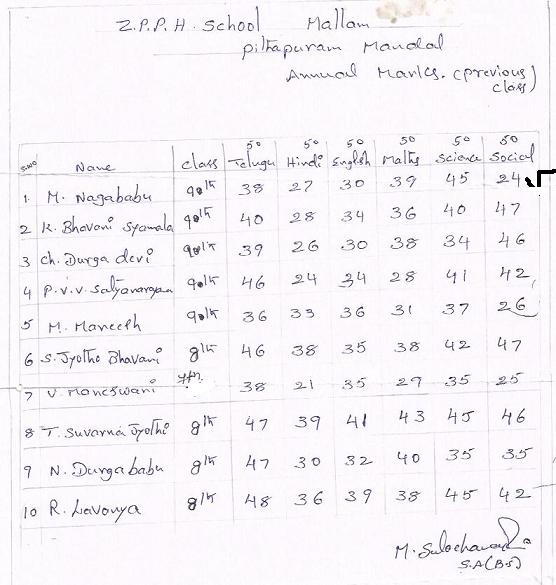 Z.P.P.H. School Mallam
Pithapuram Mandal
Annual Marks. (previous class)
50 50 50 50 50 50
S.No Name class Telugu Hindi English Maths Science Social
1. M. Nagababu 9th 38 27 30 39 45 24
2 K. Bhavani Syamala 9th 40 28 34 36 40 47
3 Ch. Durga devi 9th 39 26 30 38 34 46
4 P.V.V. Satyanarayana 9th 46 24 34 28 41 42
5 M. Maneesh 9th 36 33 36 31 37 26
6 S. Jyothi Bhavani 8th 46 38 35 38 42 47
7 V. Moneswari 7th 38 21 35 29 35 25
8 T. Suvarna Jyothi 8th 47 39 41 43 45 46
9 N. Durgababu 8th 47 30 32 40 35 35
10 R. Lavanya 8th 48 36 39 38 45 42
M.
S.A(B.S)